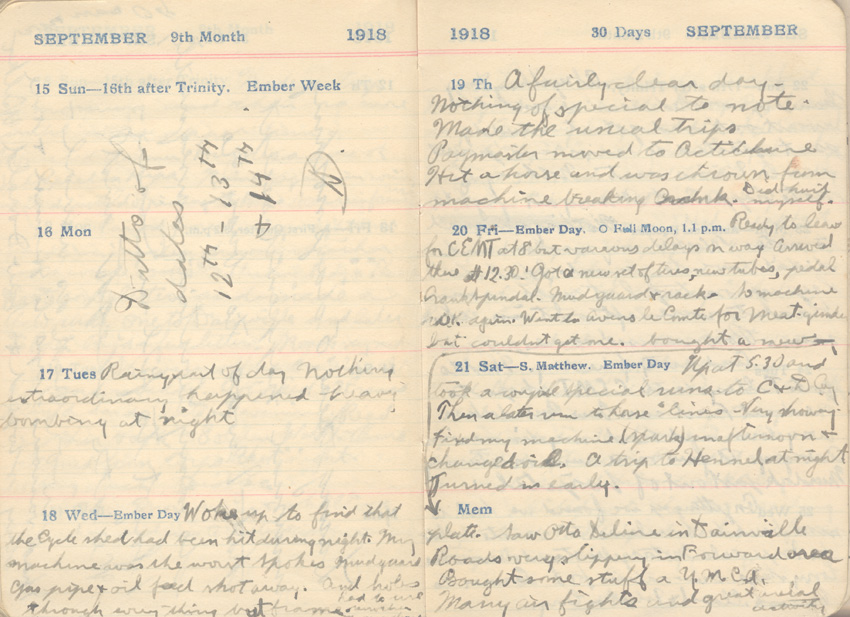 SEPTEMBER 9th Month 1918
15 Sun—16th after Trinity. Ember Week
Ditto of
dates
12th - 13th
+ 14th
16 Mon
17 Tues Rainy part of day Nothing
extraordinary happened - heavy
bombing at night
18 Wed—Ember Day Woke up to find that
the Cycle shed had been hit during night. My
machine was the worst Spokes Mudguard
Gas pipe & oil feed shot away. And holes
through everything but frame
1918 30 Days SEPTEMBER
19 Th A fairly clear day -
Nothing of special to note.
Made the usual trips
Paymaster moved to
Hit a horse and was thrown from
machine breaking Crank. Did hurt
myself.
20 Fri—Ember Day. O Full Moon, 1.1 p.m. Ready to leave
for CEMT at 8 but various delays n way arrived
there 12.30! Got a new set of tires, new tubes, pedal
Crank Spindal. Mudguard & rack. So machine
is O.K. again. Went to Avesnes le Comte for Meat-grinder
but couldn't get one. bought a new
21 Sat—S. Matthew. Ember Day Up at 5.30 and
took a special runs to C & D Coy
Then a later run to horse lines - Very showery
Fixed my machine (spark) in afternoon +
changed oil. A trip to Hennel at night
Turned in early.
Mem
plate. Saw Otto Deline in Dainville
Roads very slippery in Forward area
Bought some stuff a Y.M.C.A.
Many air fights and great aerial
activity